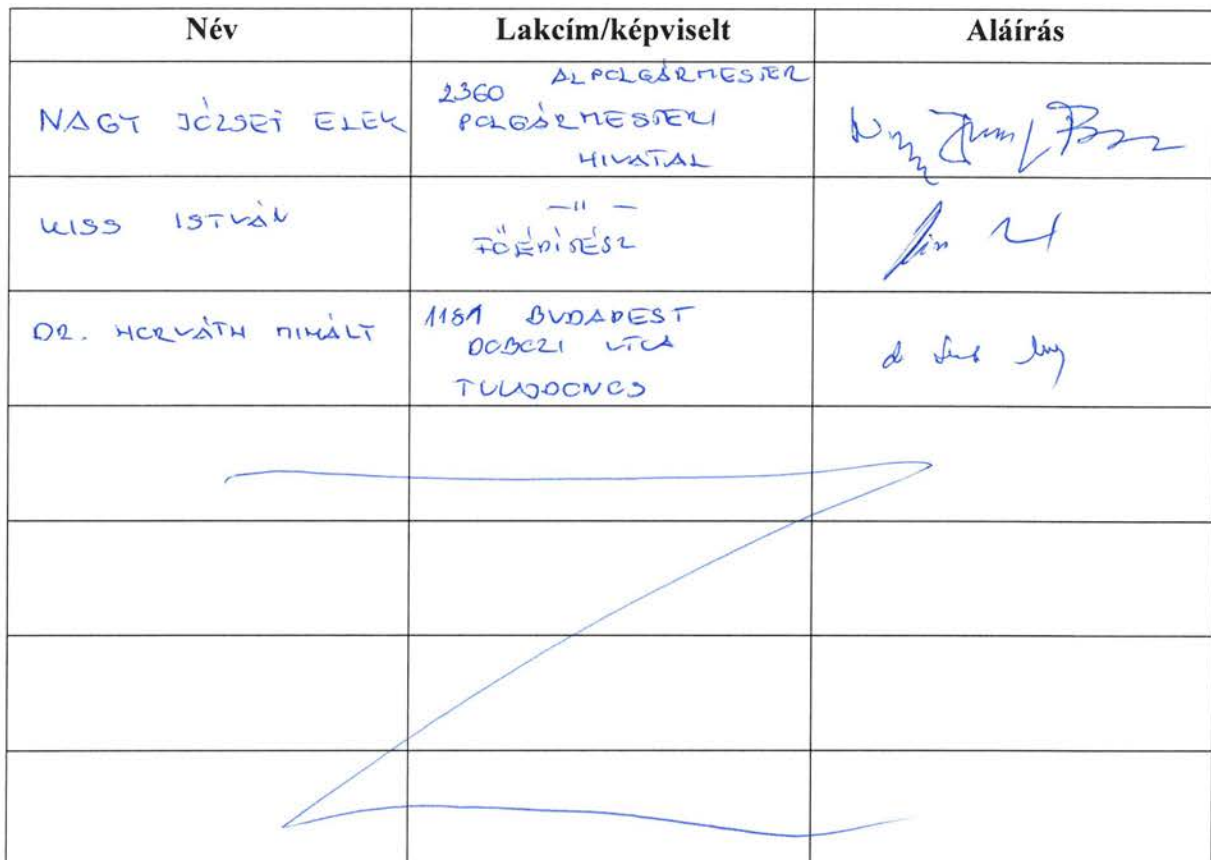 Név Lakcím/képviselt Aláírás
NAGY JÓZSEF ELEK
2360 ALPOLGÁRMESTER
POLGÁRMESTERI
HIVATAL
KISS ISTVÁN
—〃—
FŐÉPÍTÉSZ
DR. HORVÁTH MIHÁLY
1181 BUDAPEST
DOBOZI UTCA
TULAJDONOS